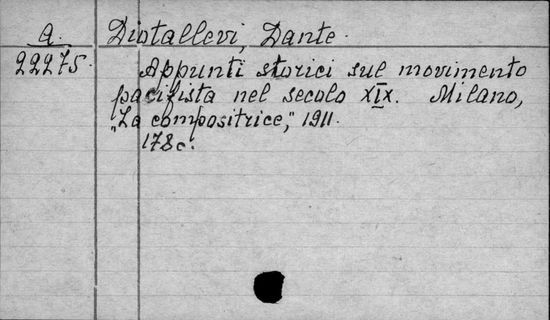 A. Diotallevi, Dante.
22275. Appunti storici sul movimento
pacifista nel secolo XIX. Milano,
"La compositrice," 1911.
178 c.